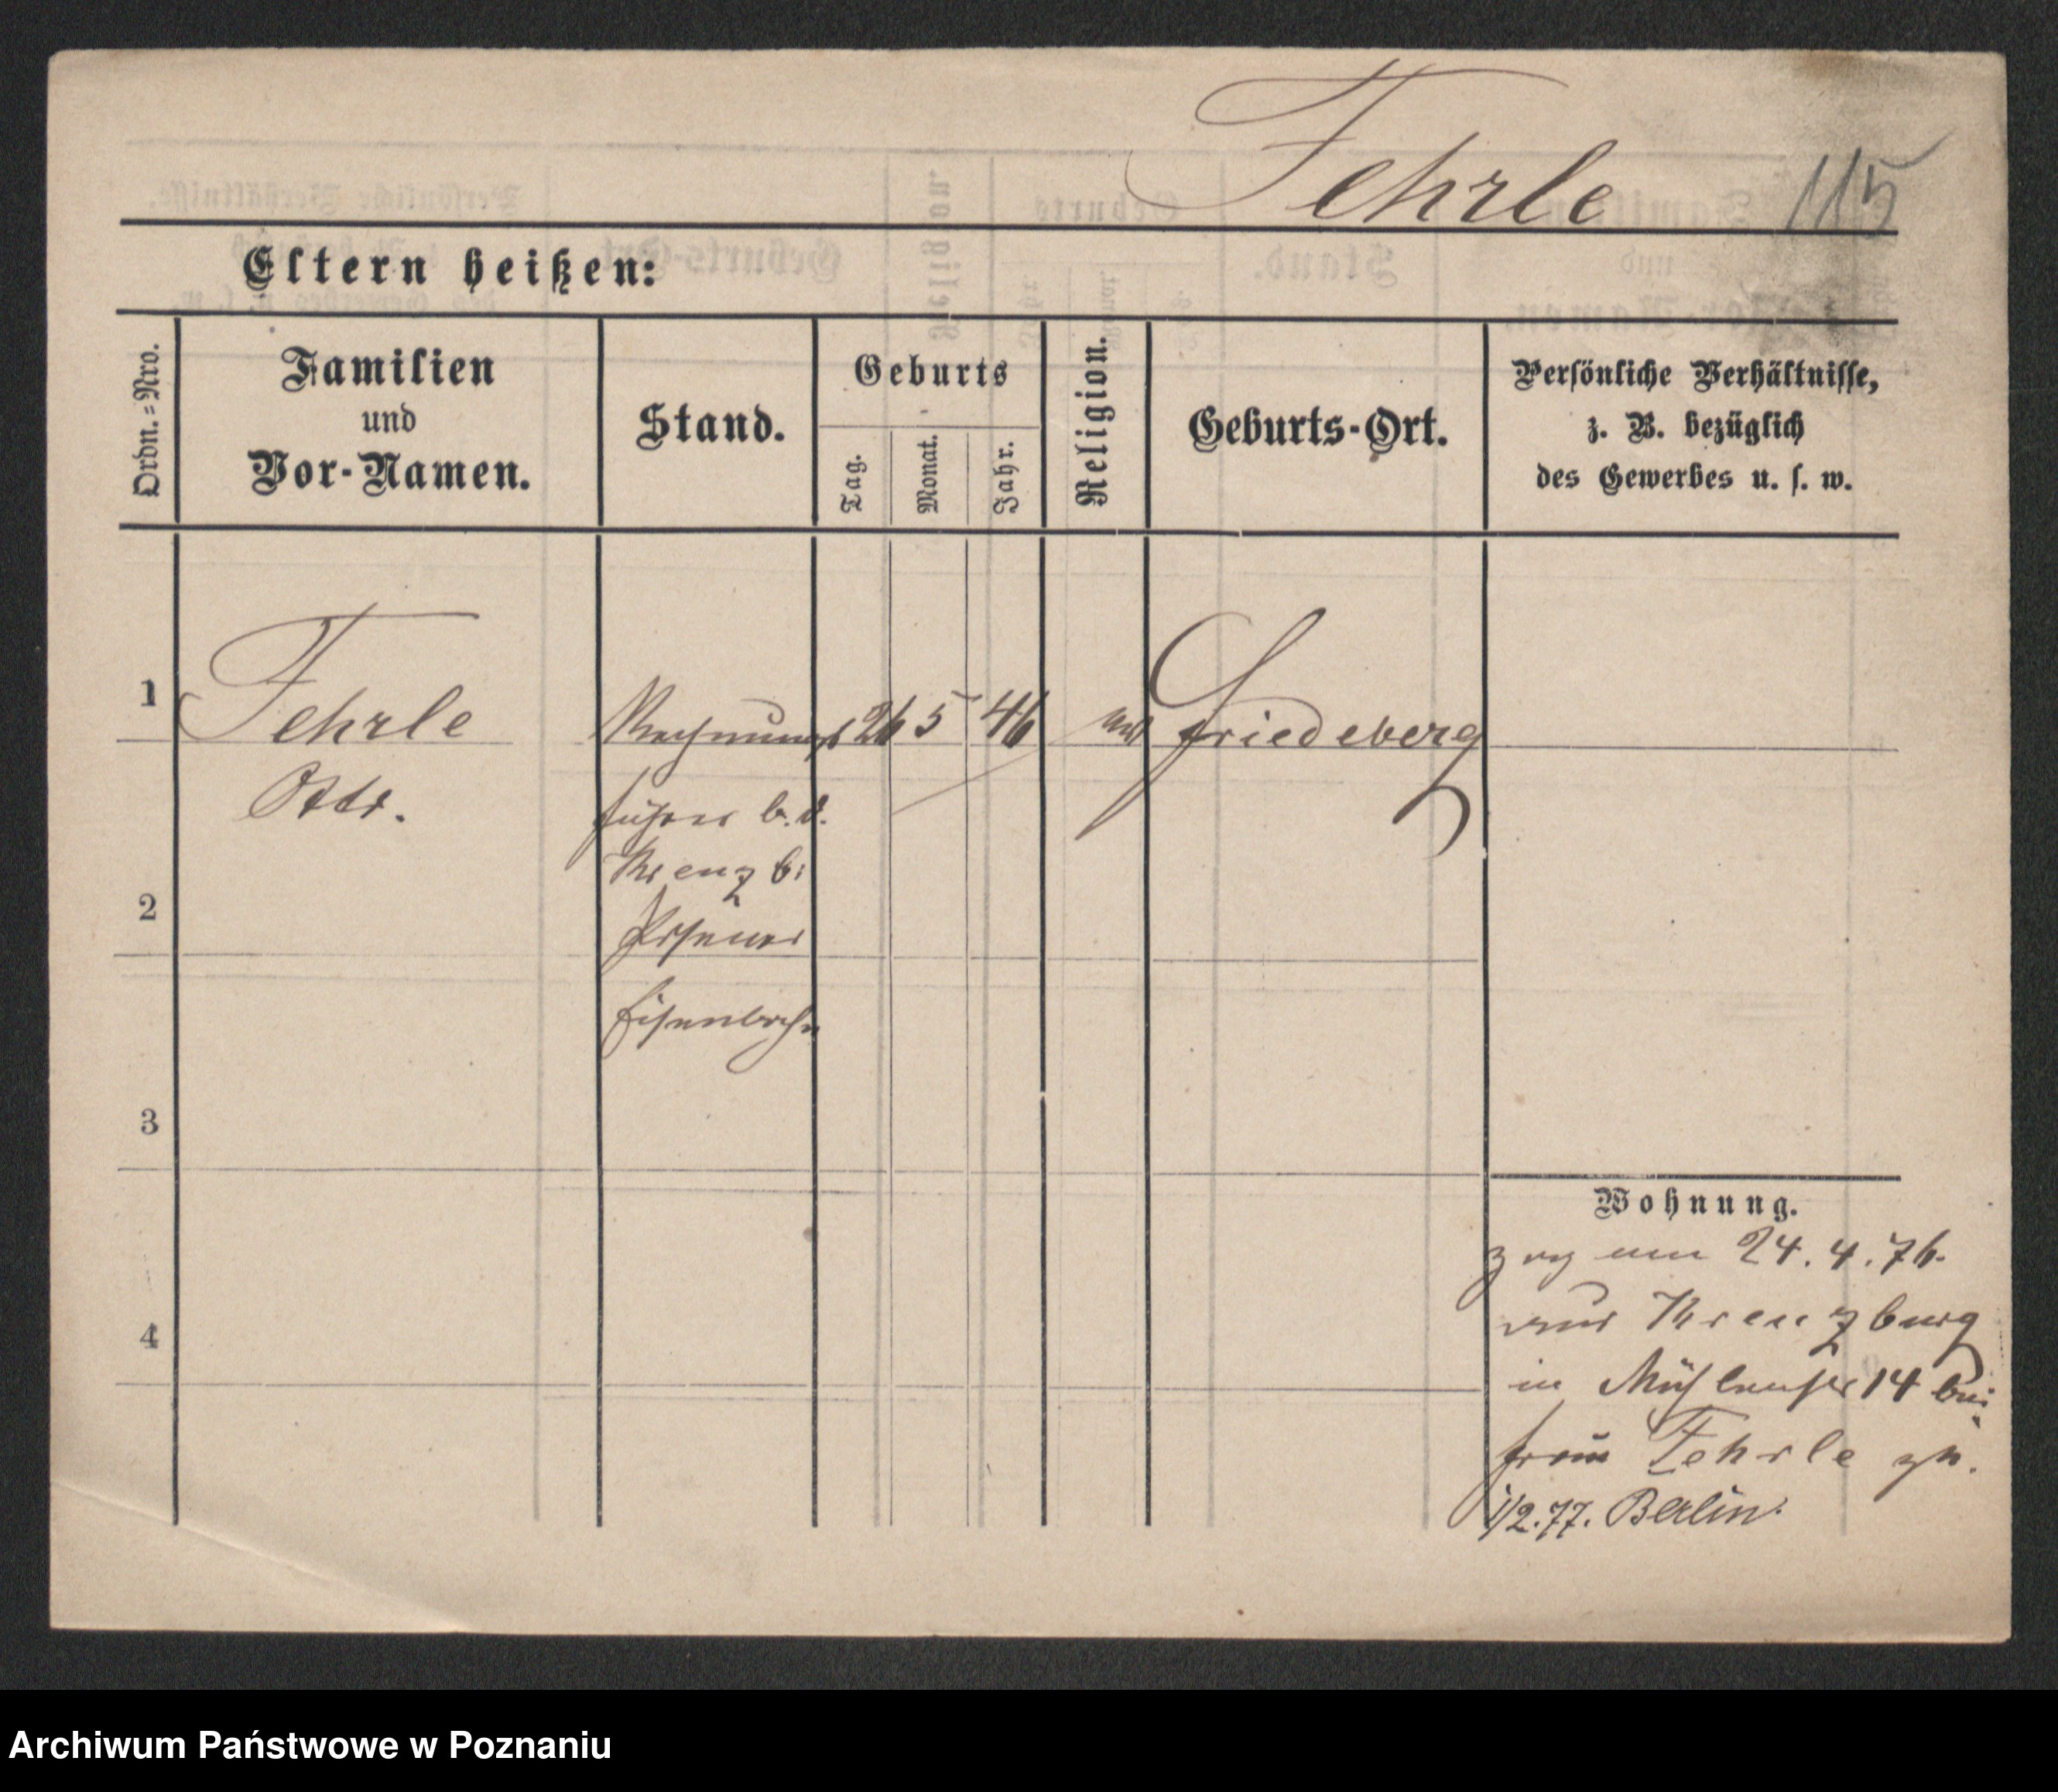 Fehrle 115
Eltern heißen:
Ordn.=Nro.
Familien
und
Vor-Namen.
Stand.
Geburts
Tag.
Monat.
Jahr.
Religion.
Geburts-Ort.
Persönliche Verhältnisse,
z. B. bezüglich
des Gewerbes u. s. w.
1 Fehrle Rechnungs 26 5 46 Friedeberg
Otto.
führer b. d.
Kreuzb:
Posener
Eisenbahn
2
3
4
Wohnung.
zog am 24.4.76.
aus Kreuzburg
in Mühlenstr 14 bei
Frau Fehrle zu.
1/2.77. Berlin.
Archiwum Państwowe w Poznaniu